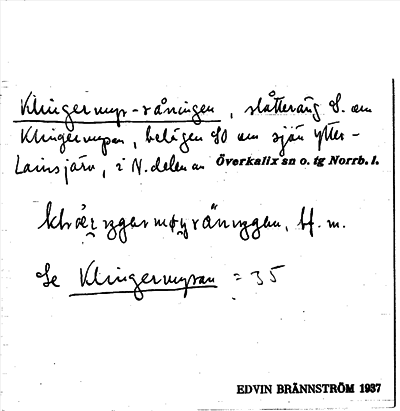 Klingermyr-råningen, slåtteräng S. om
Klingermyran, belägen SO om sjön Ytter-
Lainsjärv, i N. delen av Överkalix sn o. tg Norrb. l.
bf. m.
Se Klingermyran = 35
EDVIN BRÄNNSTRÖM 1937